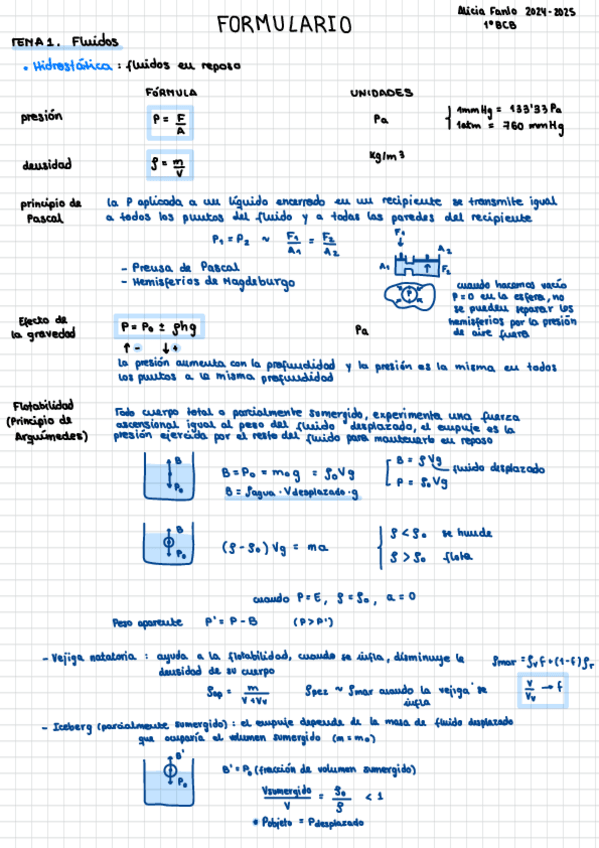 FORMULARIO
Alicia Fanlo 2024-2025
1º BCB
TEMA 1. Fluidos
• Hidrostática : fluidos en reposo
FÓRMULA UNIDADES
presión P = F/A Pa { 1mmHg = 133'33 Pa
1atm = 760 mmHg
densidad ρ = m/V kg/m³
principio de Pascal
la P aplicada a un líquido encerrado en un recipiente se transmite igual
a todos los puntos del fluido y a todas las paredes del recipiente
P₁ = P₂ ~ F₁/A₁ = F₂/A₂
F₁
A₂
A₁ F₂
- Prensa de Pascal
- Hemisferios de Magdeburgo
P
cuando hacemos vacío
P=0 en la esfera, no
se pueden separar los
hemisferios por la presión
de aire fuera
Efecto de
la gravedad
P = P₀ ± ρhg Pa
↑ - ↓ +
la presión aumenta con la profundidad y la presión es la misma en todos
los puntos a la misma profundidad
Flotabilidad
(Principio de
Arquímedes)
Todo cuerpo total o parcialmente sumergido, experimenta una fuerza
ascensional igual al peso del fluido desplazado, el empuje es la
presión ejercida por el resto del fluido para mantenerlo en reposo
B
P₀
B = P₀ = m₀g = ρ₀Vg
B = ρagua · Vdesplazado · g
[ B = ρVg fluido desplazado
P = ρ₀Vg
B
P₀
(ρ - ρ₀) Vg = ma
{ ρ < ρ₀ se hunde
ρ > ρ₀ flota
cuando P = E, ρ = ρ₀, a = 0
Peso aparente P' = P - B (P > P')
- Vejiga natatoria : ayuda a la flotabilidad, cuando se infla, disminuye la
densidad de su cuerpo
ρmar = ρᵥf + (1-f)ρᵣ
ρap = m/V+Vv ρpez ~ ρmar cuando la vejiga se
infla
V/Vv → f
- Iceberg (parcialmente sumergido) : el empuje depende de la masa de fluido desplazado
que ocuparía el volumen sumergido (m = m₀)
B'
P₀
B' = P₀ (fracción de volumen sumergido)
Vsumergido/V = ρ₀/ρ < 1
* Pobjeto = Pdesplazado